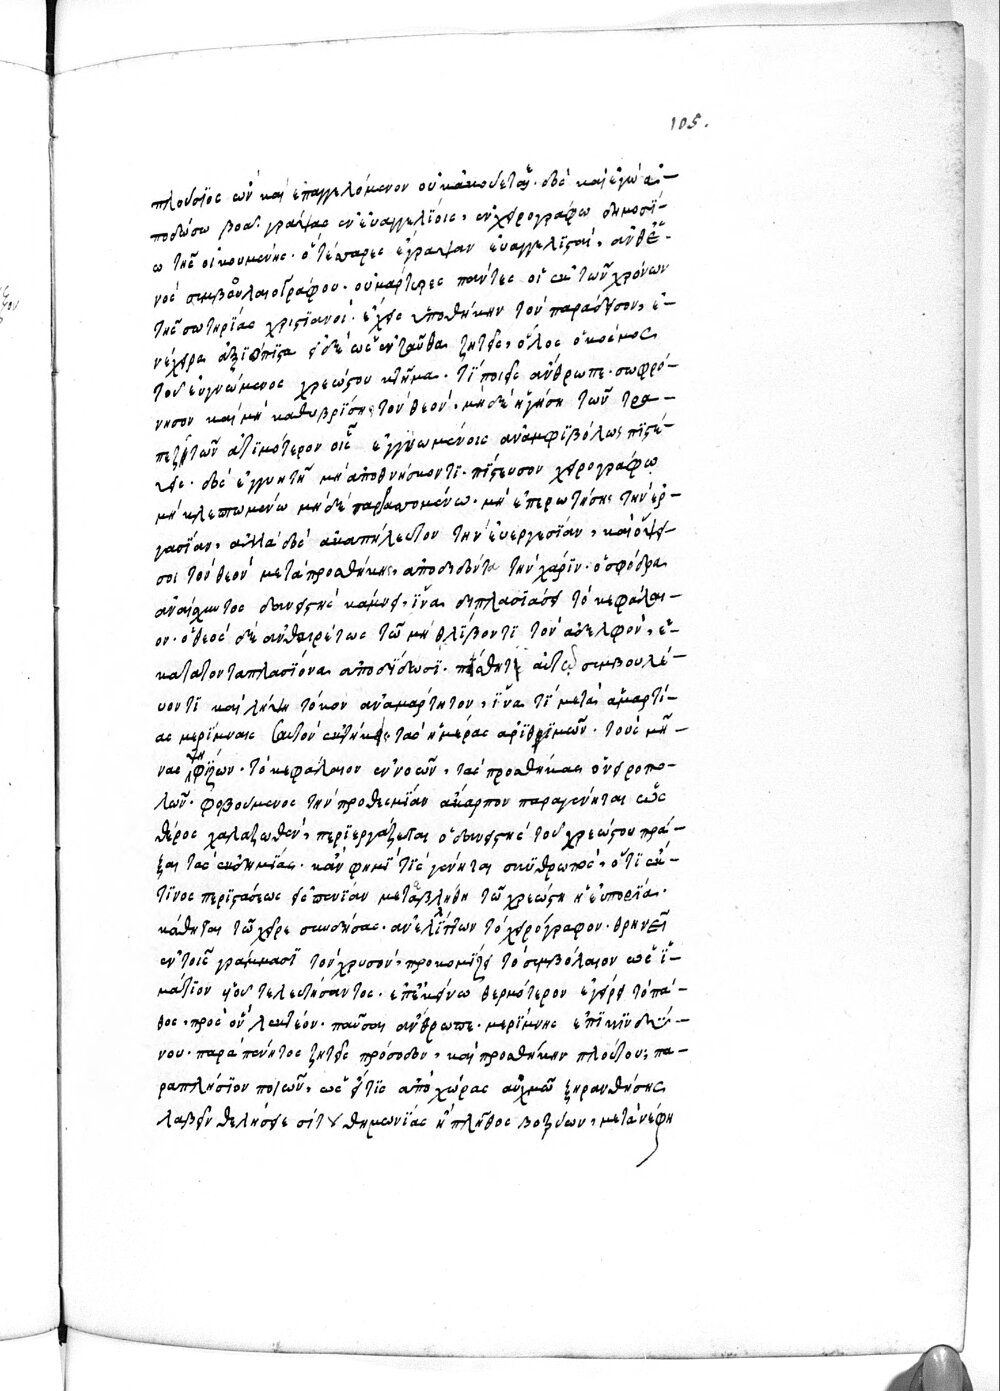 105.
πλούσιος ὢν καὶ ἐπαγγελόμενον οὐκ ἀκούεται. δὸς καὶ ἐγὼ ἀ-
ποδώσω βοᾷ. γράψας ἐν εὐαγγελίοις, ἐν χειρογράφω δημοσί-
ω τῆς οἰκουμένης. ὃ τέσσαρες ἔγραψαν εὐαγγελισταὶ, ἀνθ' ἑ-
νὸς συμβουλαιογράφου. οὗ μάρτυρες πάντες οἱ ἐκ τῶν χρόνων
τῆς σωτηρίας χριστιανοί. ἔχεις ὑποθήκην τὸν παράδεισον, ἐ-
νέχυρα ἀξιόπιστα εἰ δὲ ὡς ἐνταῦθα ζητεῖς, ὅλος ὁ κόσμος
τοῦ εὐγνώμονος χρεώστου κτῆμα. τί ποιεῖς ἄνθρωπε. σωφρό-
νησον καὶ μὴ καθυβρίσης τὸν θεόν, μὴ δὲ ἡγήση τῶν τρα-
πεζιτῶν ἀτιμότερον οἷς ἐγγυωμένοις ἀναμφιβόλως πιστεύ-
εις. δὸς ἐγγυητῆ μὴ ἀποθνήσκοντι. πίστευσον χειρογράφω
μὴ κλεπτομένω μὴ δὲ παρδαπομένω. μὴ ἐπερωτήσης τὴν ἐρ-
γασίαν, ἀλλὰ δὸς ἀκαπήλευτον τὴν εὐεργεσίαν, καὶ ὄψει
σοι τὸν θεὸν μετὰ προσθήκης, ἀποδιδόντα τὴν χάριν. ὁ σφόδρα
ἀναίσχυντος δανειστὴς κάμνει, ἵνα διπλασιάσει τὸ κεφάλαι-
ον. ὁ θεὸς δὲ αὐθαιρέτως τῶ μὴ θλίβοντι τὸν ἀδελφόν, ἑ-
κατατονταπλασίονα ἀποδίδωσι. πείσθητι αὐτῶ συμβουλεύ-
οντι καὶ λήψη τόκον ἀναμάρτητον, ἵνα τί μετὰ ἁμαρτί-
ας μερίμναις ἑαυτὸν ἐκτήκεις τὰς ἡμέρας ἀριθμῶν. τοὺς μῆ-
νας ψηφίζων. τὸ κεφάλαιον ἐννοῶν, τὰς προσθήκας ὀνειροπο-
λῶν. φοβούμενος τὴν προθεσμίαν ἄκαρπον παραγένηται ὡς
θέρος χαλαζωθέν, περιεργάζεται ὁ δανειστὴς τοῦ χρεώστου πρά-
ξαι τὰς ἐκδημίας. κἂν φημί τις γένηται σκυθρωπός, ὅτι ἐκ
τινος περιστάσεως εἰς πενίαν μεταβλήθη τῶ χρεώστη ἡ εὐπορία.
κάθηται τῶ χεῖρε συνδήσας. ἀνελίττων τὸ χειρόγραφον. θρηνεῖ
ἐν τοῖς γράμμασι τὸν χρυσόν, προκομίζει τὸ συμβόλαιον ὡς ἱ-
μάτιον υἱοῦ τελευτήσαντος. ἀπ' ἐκείνω θερμότερον ἐγείρει τὸ πά-
θος. πρὸς ὃν λεκτέον. παῦσαι ἄνθρωπε. μερίμνης ἐπικινδύ-
νου. παρὰ πένητος ζητεῖς πρόσοδον, καὶ προσθήκην πλούτου, πα-
ραπλήσιον ποιῶν, ὡς εἴ τις ἀπὸ χώρας αὐχμῶ ξηρανθείσης
λαβεῖν θελήσειε σίτου θημωνίας ἢ πλῆθος βοτρύων, μετὰ νέφη